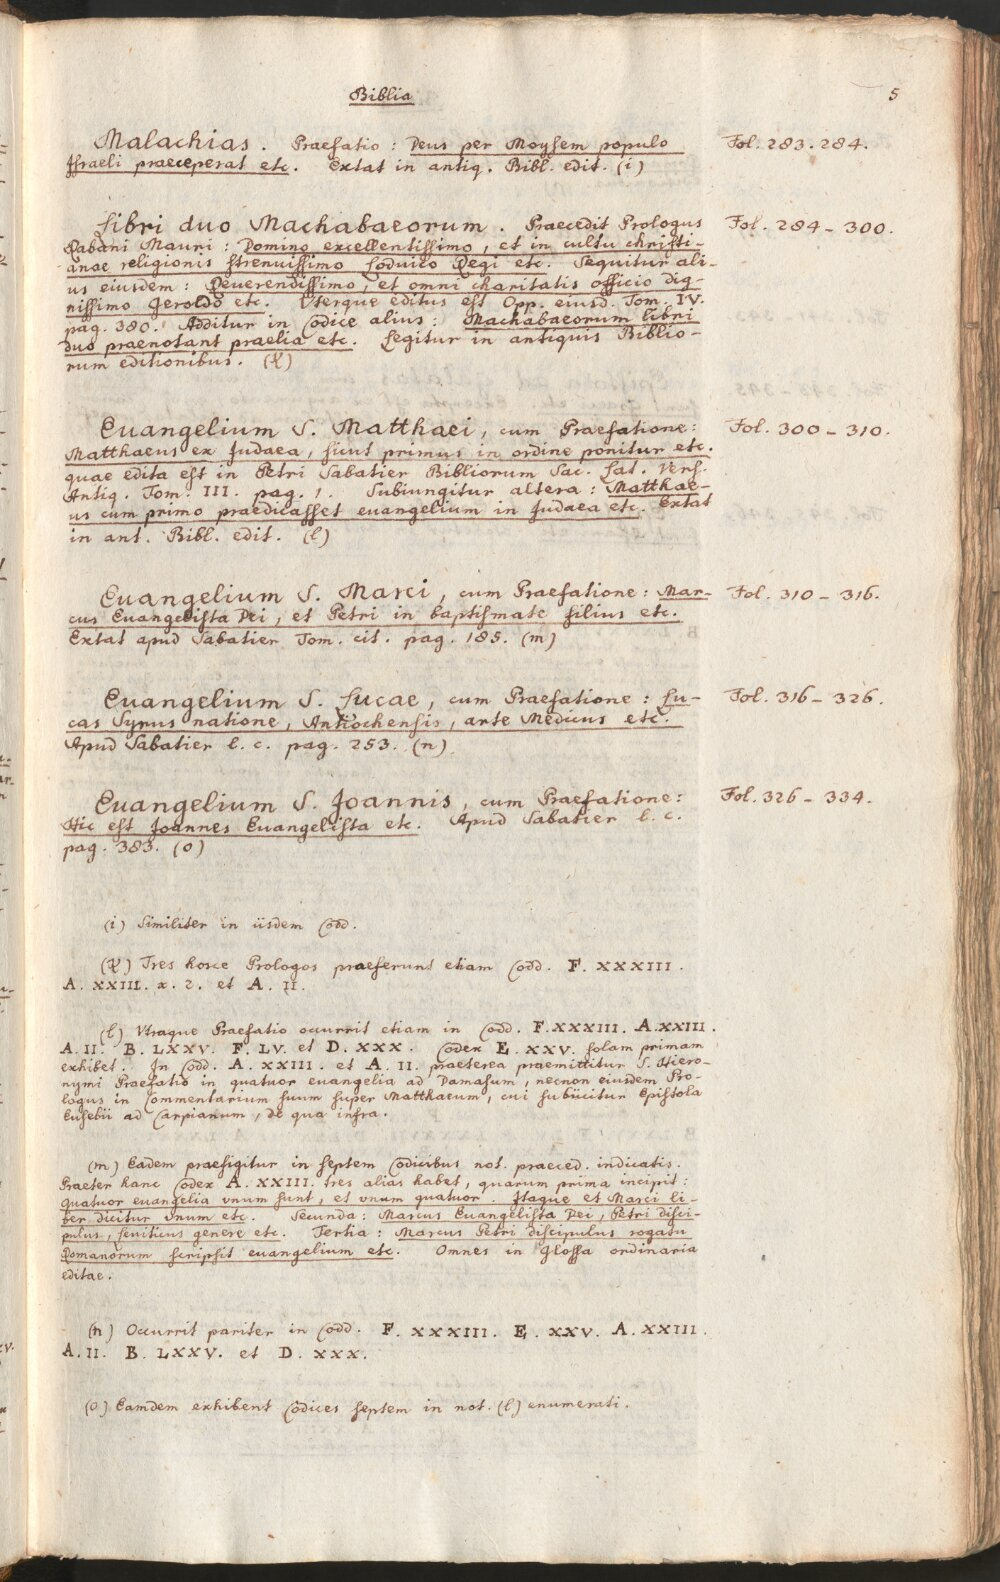 Biblia
5
Malachias. Praefatio: Deus per Moysem populo
Fol. 283. 284.
Israeli praeceperat etc. Extat in antiq. Bibl. edit. (i)
Libri duo Machabaeorum. Praecedit Prologus
Fol. 284 - 300.
Rabani Mauri: Domino excellentissimo, et in cultu christi-
anae religionis strenuissimo Loduico Regi etc. Sequitur ali-
us eiusdem: Reuerendissimo, et omni charitatis officio dig-
nissimo Geroldo etc. Vterque editus est Opp. eiusd. Tom. IV.
pag. 380. Additur in Codice alius: Machabaeorum libri
duo praenotant praelia etc. Legitur in antiquis Biblio-
rum editionibus. (k)
Euangelium S. Matthaei, cum Praefatione:
Fol. 300 - 310.
Matthaeus ex Judaea, sicut primus in ordine ponitur etc.
quae edita est in Petri Sabatier Bibliorum Sac. Lat. Vers.
Antiq. Tom. III. pag. 1. Subiungitur altera: Matthae-
us cum primo praedicasset euangelium in Judaea etc. Extat
in ant. Bibl. edit. (l)
Euangelium S. Marci, cum Praefatione: Mar-
Fol. 310 - 316.
cus Euangelista Dei, et Petri in baptismate filius etc.
Extat apud Sabatier Tom. cit. pag. 185. (m)
Euangelium S. Lucae, cum Praefatione: Lu-
Fol. 316 - 326.
cas Syrus natione, Antiochensis, arte Medicus etc.
Apud Sabatier l. c. pag. 253. (n)
Euangelium S. Joannis, cum Praefatione:
Fol. 326 - 334.
Hic est Joannes Euangelista etc. Apud Sabatier l. c.
pag. 383. (o)
(i) Similiter in iisdem Codd.
(k) Tres hosce Prologos praeferunt etiam Codd. F. XXXIII.
A. XXIII. x. 2. et A. II.
(l) Vtraque Praefatio occurrit etiam in Codd. F. XXXIII. A. XXIII.
A. II. B. LXXV. F. LV. et D. XXX. Codex E. XXV. solam primam
exhibet. In Codd. A. XXIII. et A. II. praeterea praemittitur S. Hiero-
nymi Praefatio in quatuor euangelia ad Damasum, necnon eiusdem Pro-
logus in Commentarium suum super Matthaeum, cui subiicitur Epistola
Eusebii ad Carpianum, de qua infra.
(m) Eadem praefigitur in septem Codicibus not. praeced. indicatis.
Praeter hanc Codex A. XXIII. tres alias habet, quarum prima incipit:
Quatuor euangelia vnum sunt, et vnum quatuor. Itaque et Marci li-
ber dicitur vnum etc. Secunda: Marcus Euangelista Dei, Petri disci-
pulus, leuiticus genere etc. Tertia: Marcus Petri discipulus rogatu
Romanorum scripsit euangelium etc. Omnes in Glossa ordinaria
editae.
(n) Occurrit pariter in Codd. F. XXXIII. E. XXV. A. XXIII.
A. II. B. LXXV. et D. XXX.
(o) Eamdem exhibent Codices septem in not. (l) enumerati.